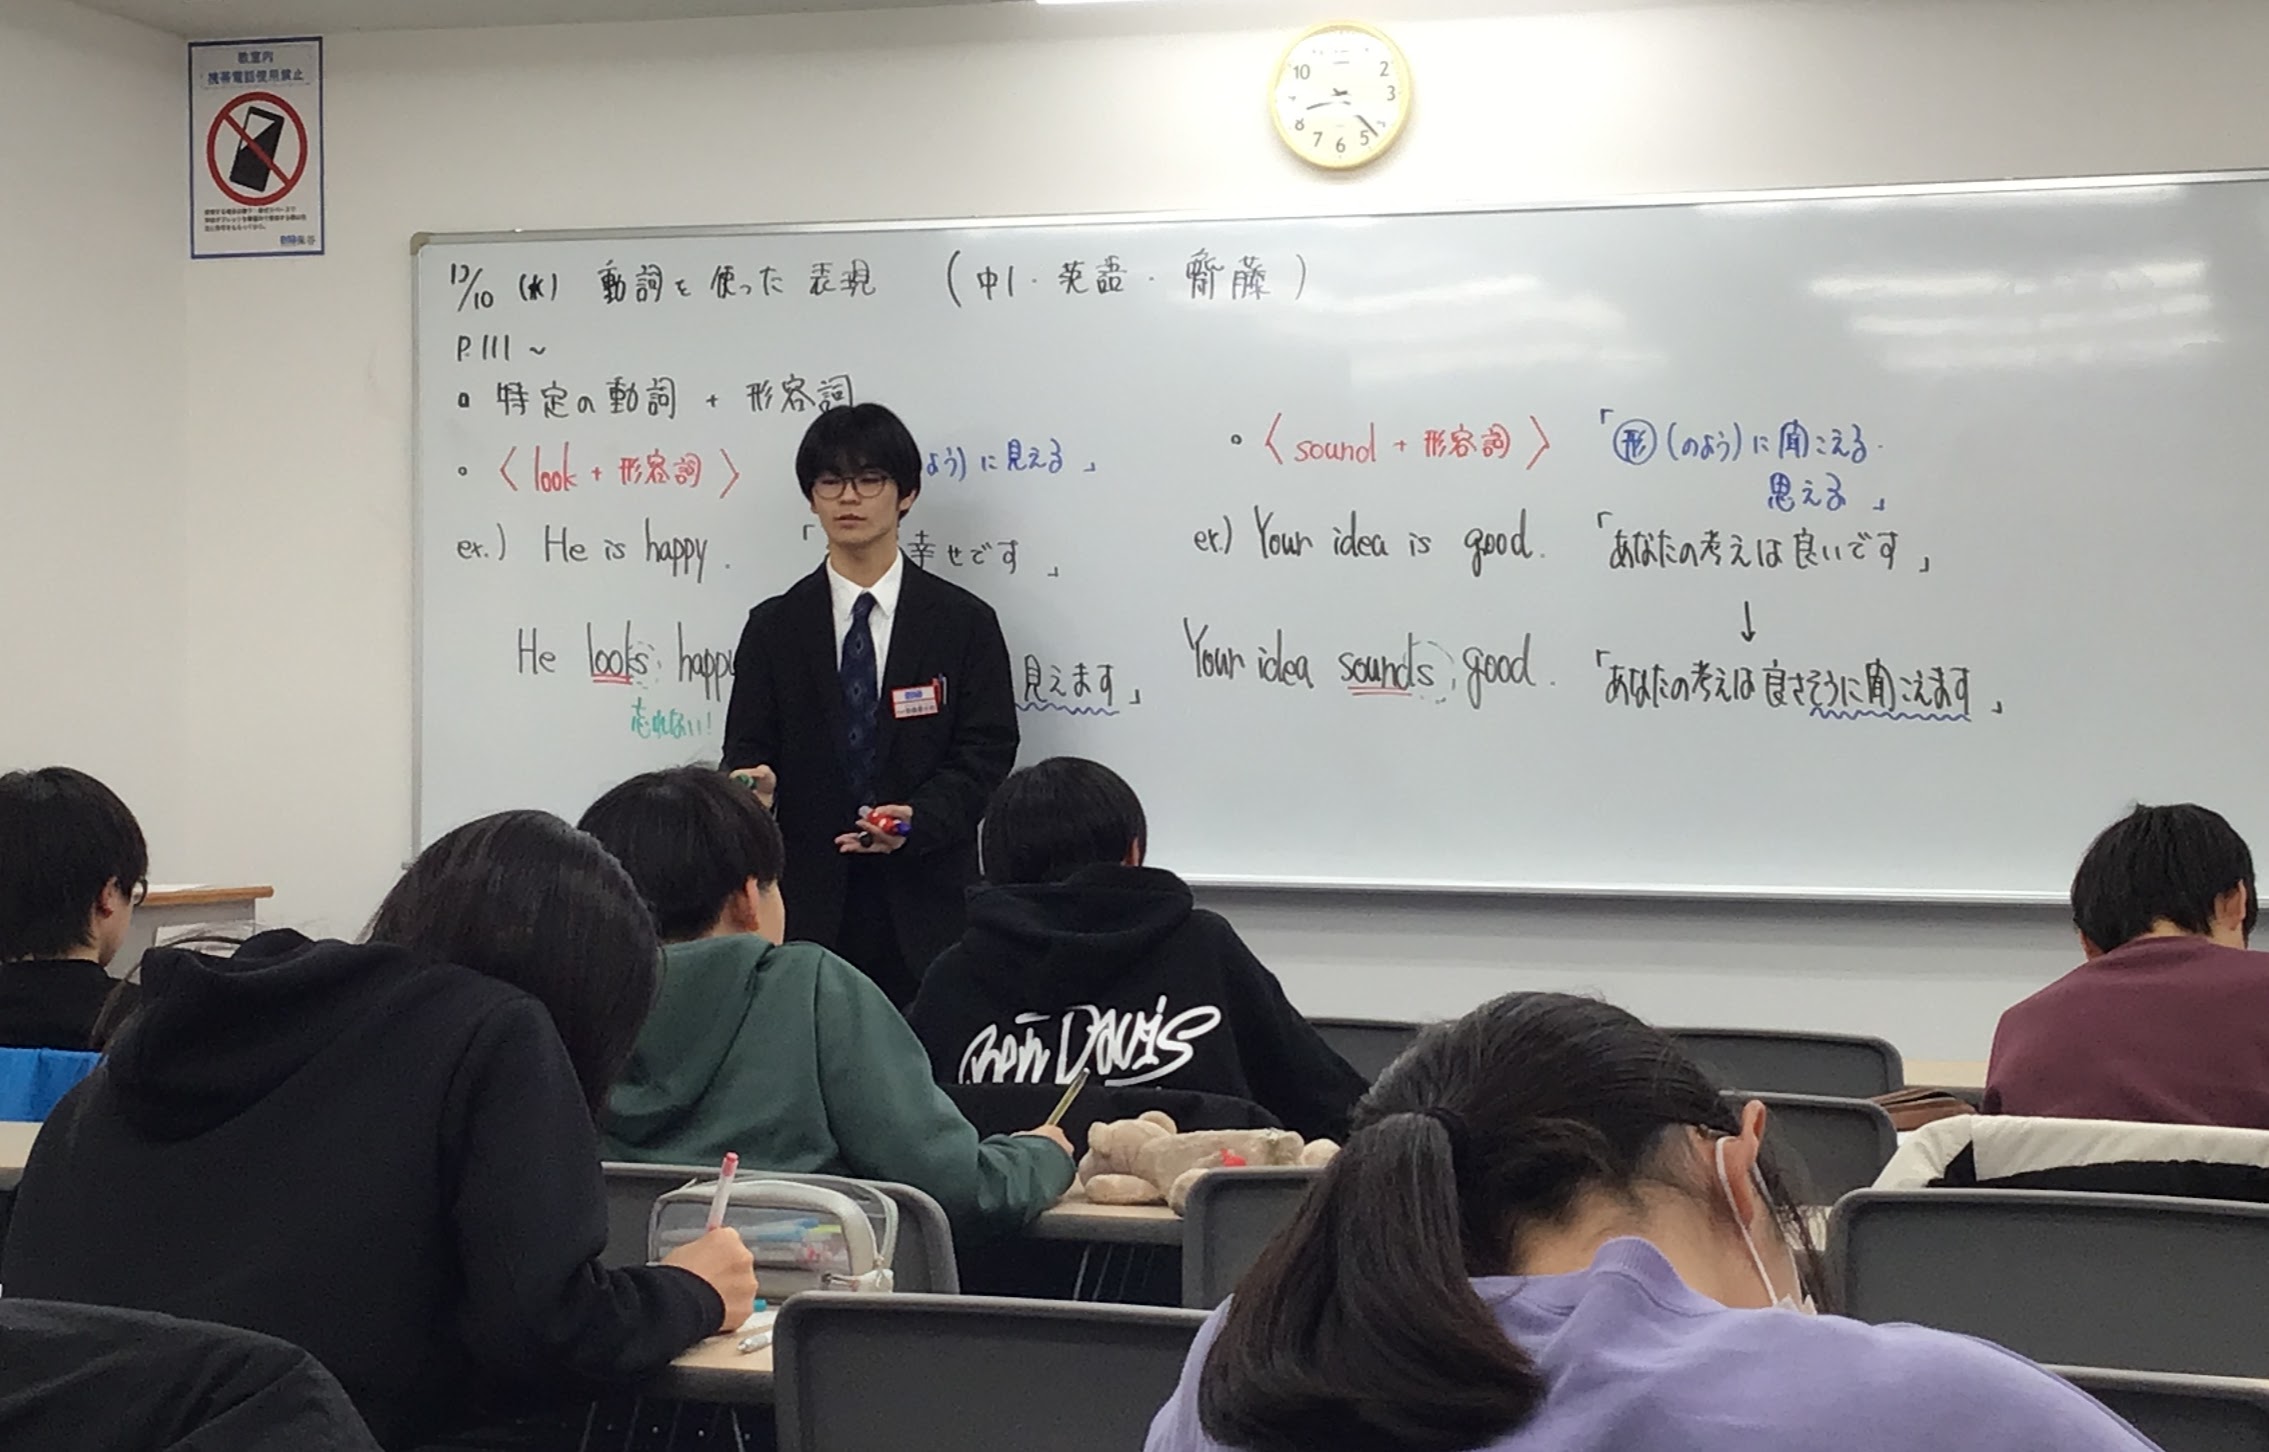 教室内
携帯電話使用禁止
10 2 3 5 6 7 8
12/10 (水) 動詞を使った表現 (中1・英語・齋藤)
P.111 ~
特定の動詞 + 形容詞
〈look + 形容詞〉 よう)に見える」
ex.) He is happy. 「 幸せです」
He looks happy 見えます」
忘れない!
〈sound + 形容詞〉 「形(のよう)に聞こえる・
思える」
ex.) Your idea is good. 「あなたの考えは良いです」
↓
Your idea sounds good. 「あなたの考えは良さそうに聞こえます」
Ben Davis